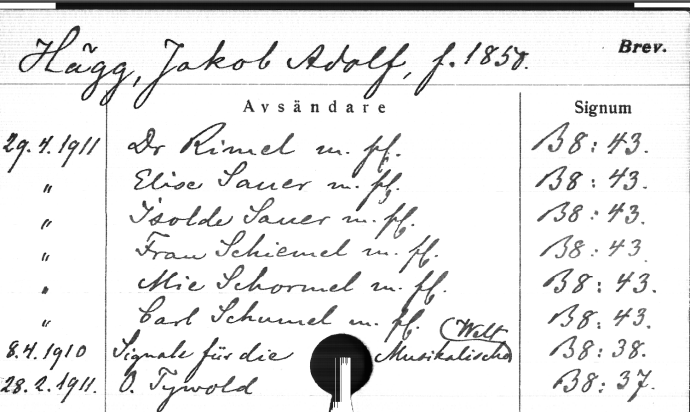 Hägg, Jakob Adolf, f. 1850. Brev.
Avsändare Signum
29.4.1911 Dr Rimel m. fl. B8:43.
" Elise Sauer m. fl. B8:43.
" Isolde Sauer m. fl. B8:43.
" Frau Schiemel m. fl. B8:43
" Mie Schormel m. fl. B8:43.
" Carl Schumel m. fl. B8:43.
8.4.1910 Signale für die Musikalische Welt B8:38.
28.2.1911. O. Tywold B8:37.